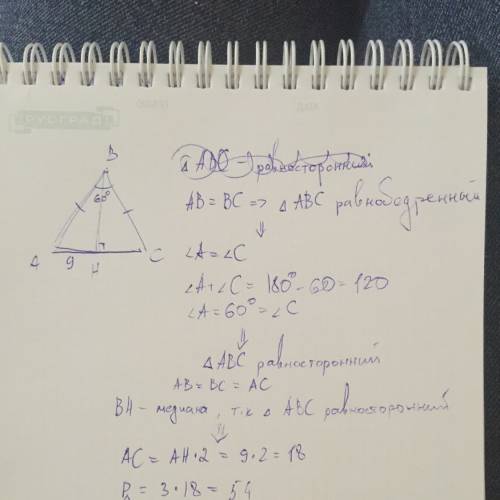 РУСГРАД
△ ABC - равносторонний
B
60°
A 9 H C
AB = BC => △ ABC равнобедренный
⇓
∠A = ∠C
∠A + ∠C = 180° - 60 = 120
∠A = 60° = ∠C
⇓
△ ABC равносторонний
AB = BC = AC
BH - медиана, т.к △ ABC равносторонний
⇓
AC = AH · 2 = 9 · 2 = 18
P = 3 · 18 = 54